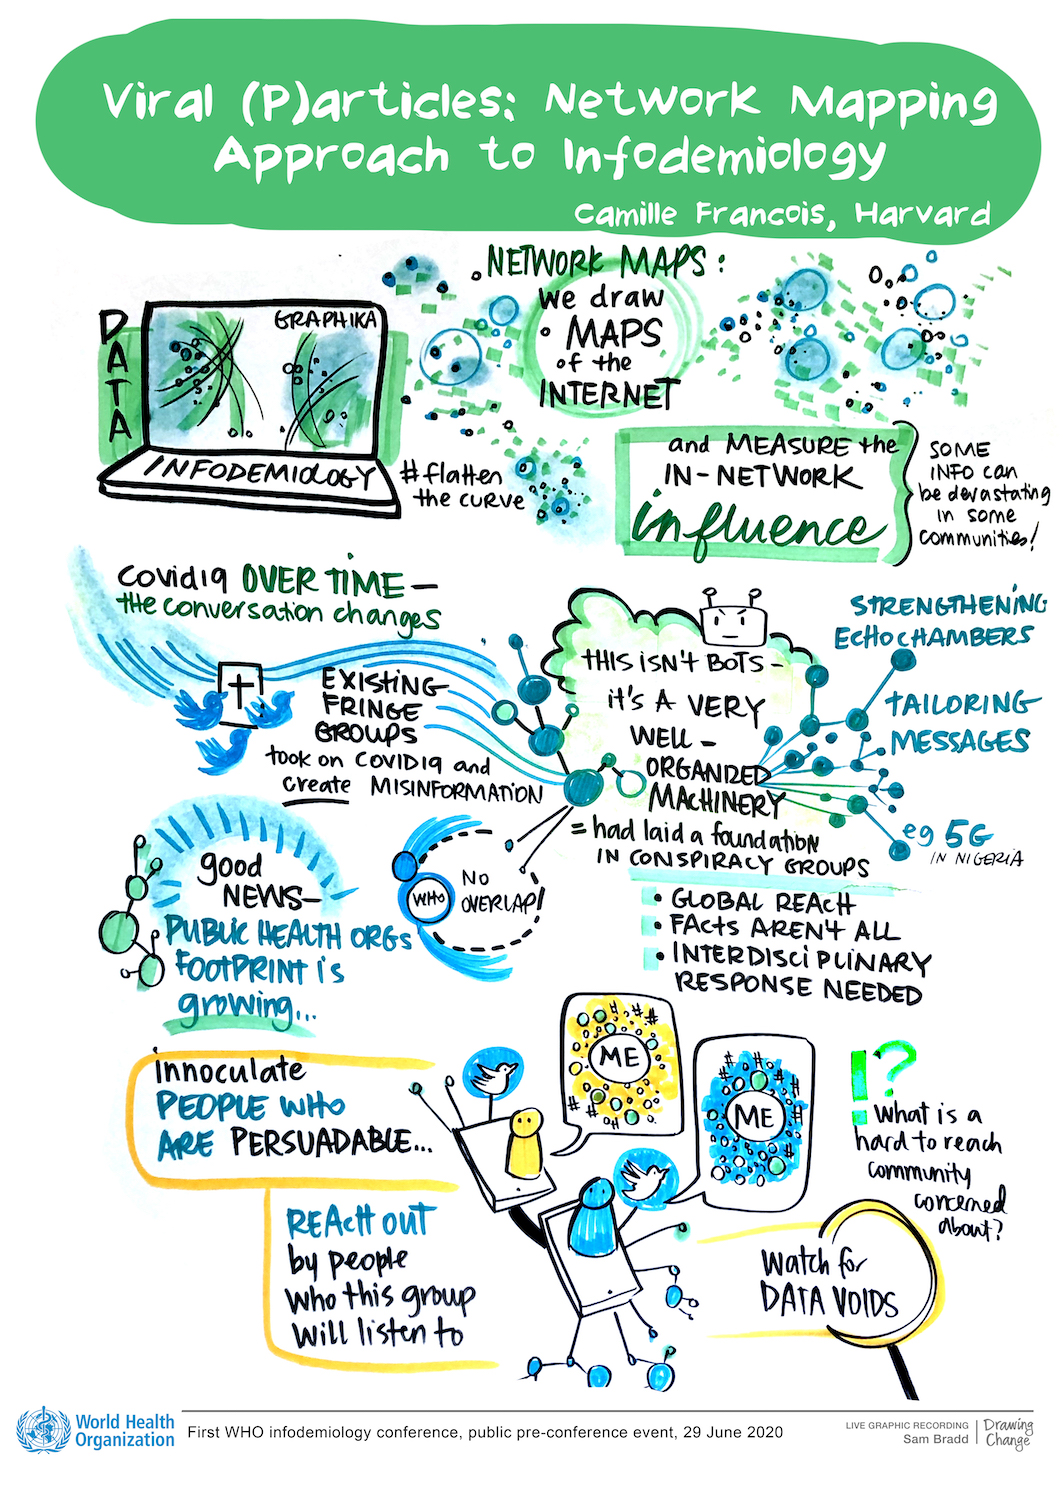 Viral (P)articles: Network Mapping
Approach to Infodemiology
Camille Francois, Harvard
NETWORK MAPS:
we draw
MAPS
of the
INTERNET
DATA
GRAPHIKA
INFODEMIOLOGY
#flatten
the curve
and MEASURE the
IN-NETWORK
influence
SOME
INFO can
be devastating
in some
communities!
Covid19 OVER TIME —
the conversation changes
EXISTING
FRINGE
GROUPS
took on COVID19 and
create MISINFORMATION
THIS ISN'T BOTS -
it's A VERY
WELL -
ORGANIZED
MACHINERY
= had laid a foundation
IN CONSPIRACY GROUPS
STRENGTHENING
ECHOCHAMBERS
TAILORING
MESSAGES
eg 5G
IN NIGERIA
good
NEWS—
PUBLIC HEALTH ORGs
FOOTPRINT is
growing...
WHO
NO
OVERLAP!
• GLOBAL REACH
• FACTS AREN'T ALL
• INTERDISCIPLINARY
RESPONSE NEEDED
innoculate
PEOPLE WHO
ARE PERSUADABLE...
REACH OUT
by people
who this group
will listen to
ME
ME
!?
What is a
hard to reach
community
concerned
about?
Watch for
DATA VOIDS
World Health
Organization
First WHO infodemiology conference, public pre-conference event, 29 June 2020
LIVE GRAPHIC RECORDING
Sam Bradd
Drawing
Change